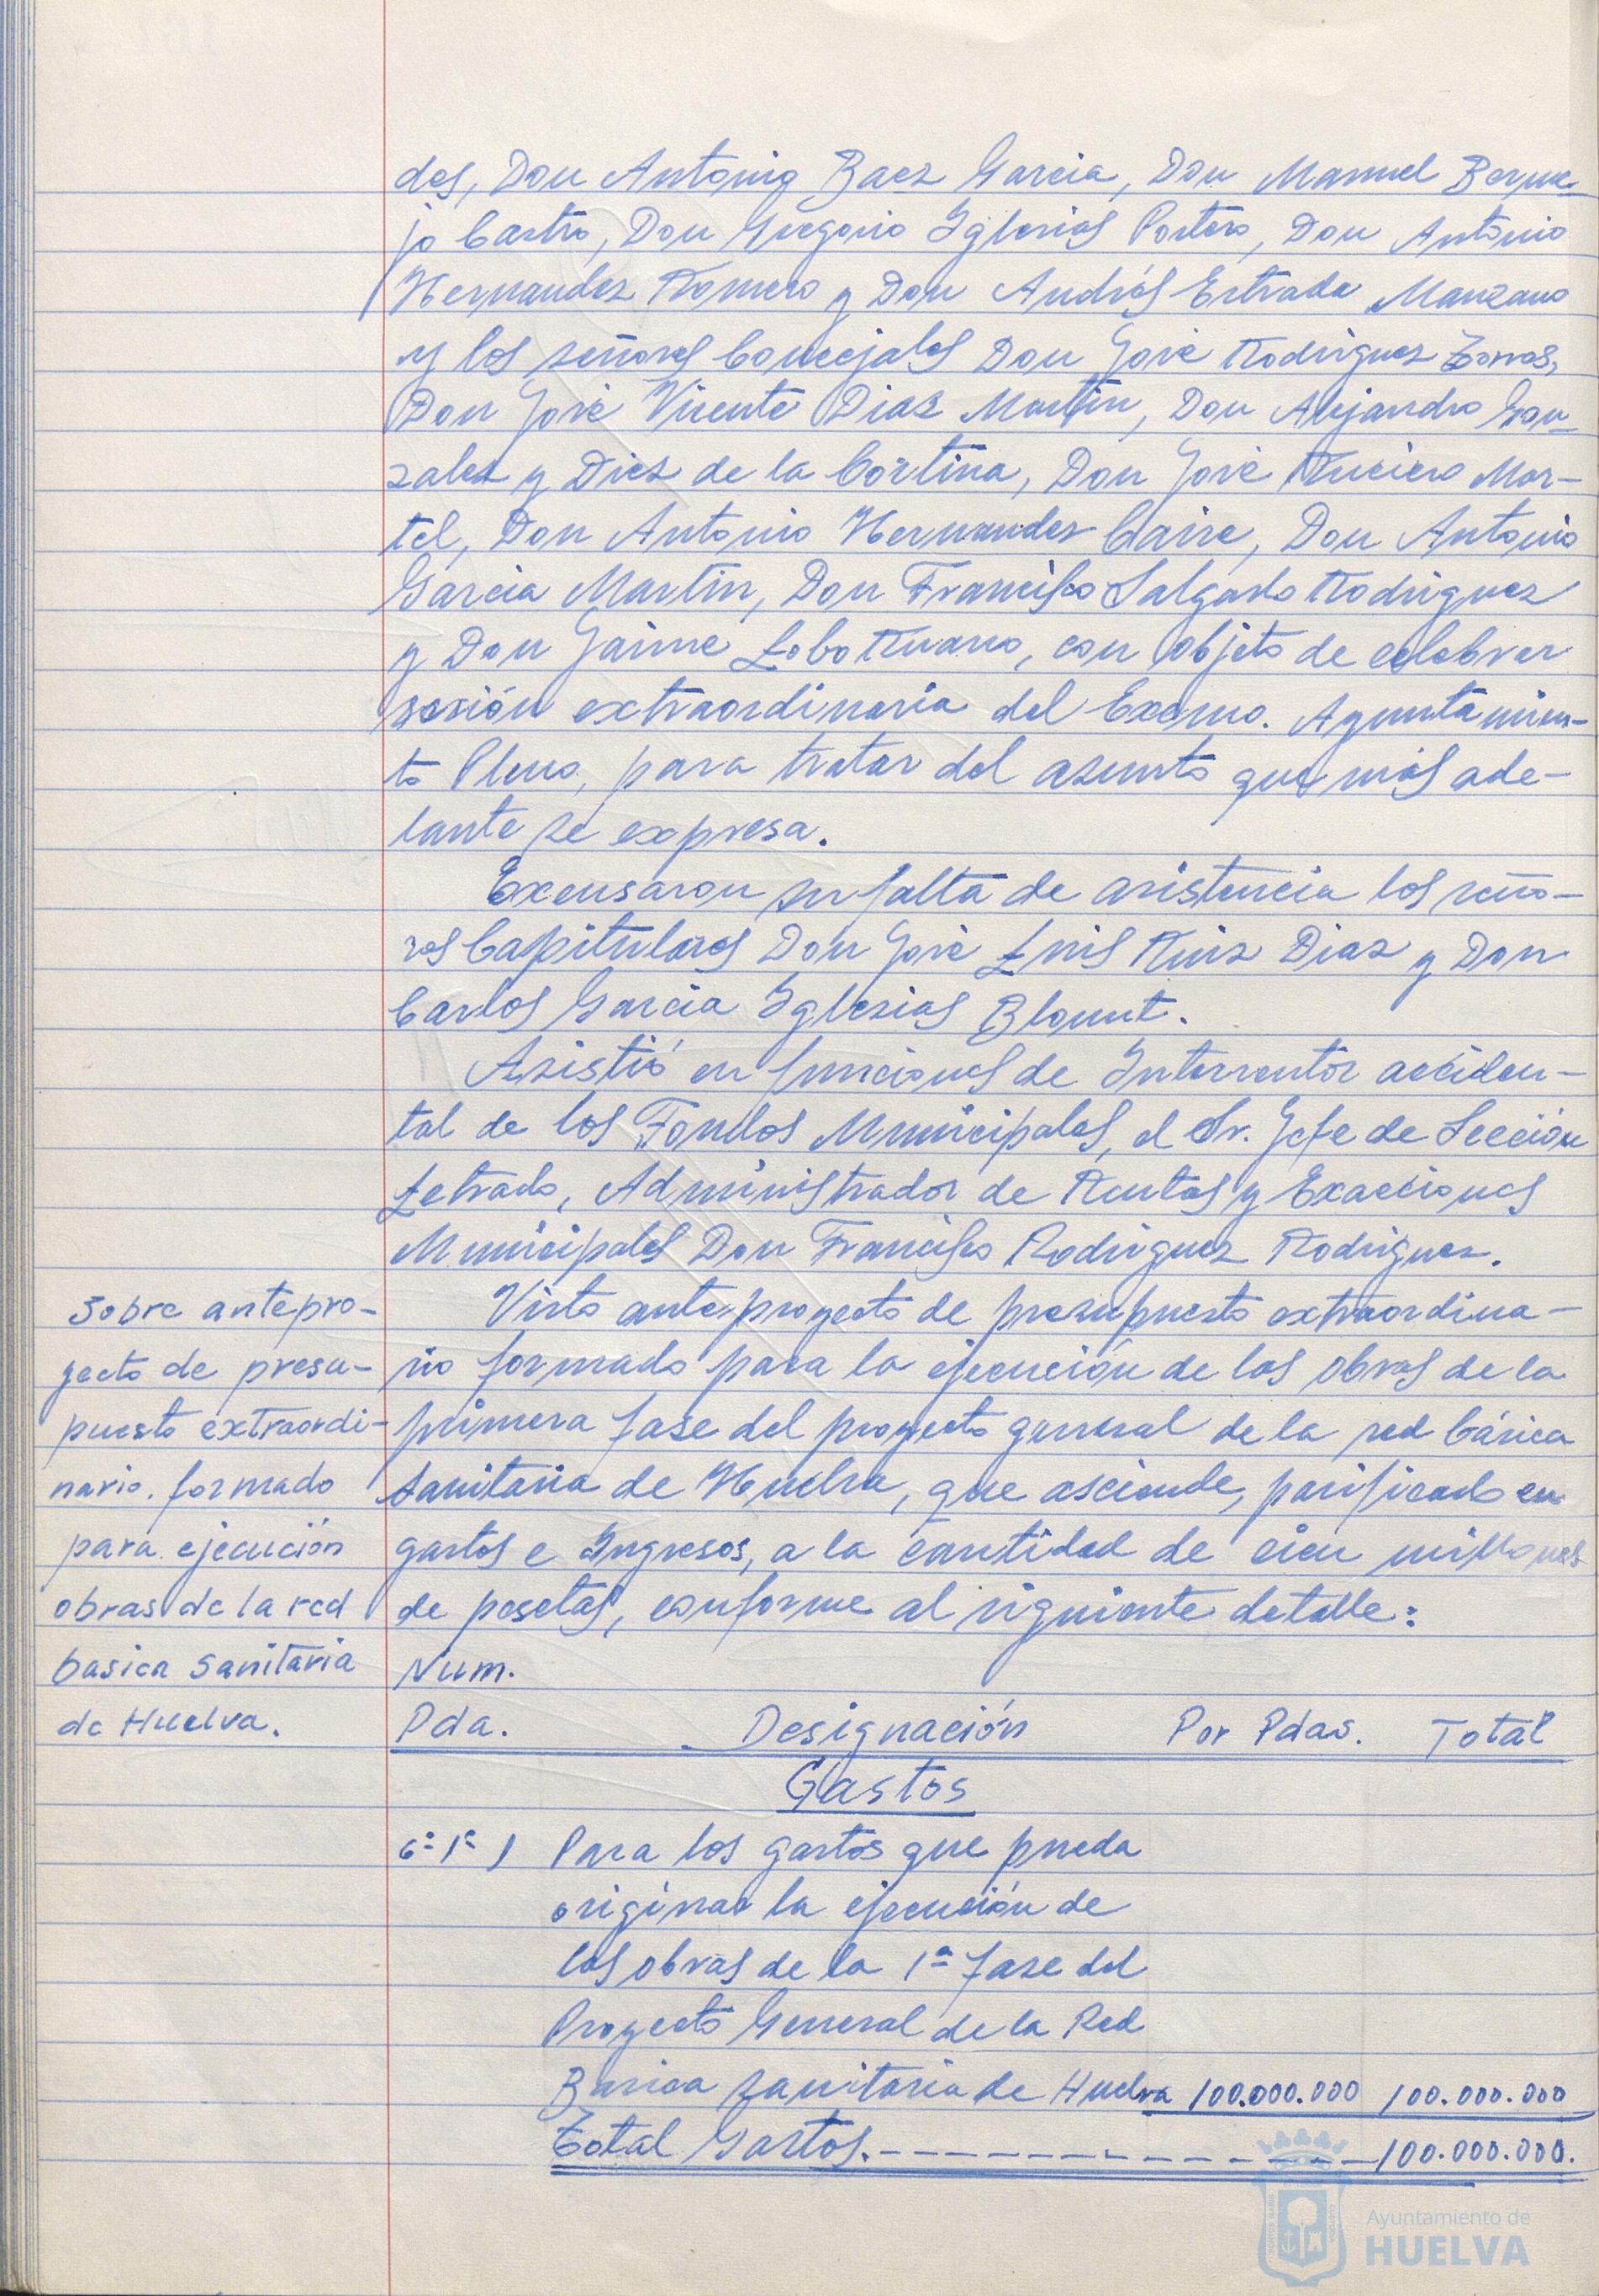 des, Don Antonio Baez Garcia, Don Manuel Berme-
jo Castro, Don Gregorio Iglesias Portero, Don Antonio
Hernandez Romero y Don Andrés Estrada Manzano
y los señores Concejales Don José Rodriguez Torres,
Don José Vicente Diaz Martin, Don Alejandro Gon-
zalez y Diez de la Cortina, Don José Ruciero Mar-
tel, Don Antonio Hernandez Caire, Don Antonio
Garcia Martin, Don Francisco Salgado Rodriguez
y Don Jaime Lobo Ruano, con objeto de celebrar
sesión extraordinaria del Excmo. Ayuntamien-
to Pleno, para tratar del asunto que más ade-
lante se expresa.
Excusaron su falta de asistencia los seño-
res Capitulares Don José Luis Ruiz Diaz y Don
Carlos Garcia Iglesias Blount.
Asistió en funciones de Interventor acciden-
tal de los Fondos Municipales, el Sr. Jefe de Sección
Letrado, Administrador de Rentas y Exacciones
Municipales Don Francisco Rodriguez Rodriguez.
Sobre antepro-
yecto de presu-
puesto extraordi-
nario. formado
para ejecución
obras de la red
basica Sanitaria
de Huelva.
Visto anteproyecto de presupuesto extraordina-
rio formado para la ejecución de las obras de la
primera fase del proyecto general de la red básica
Sanitaria de Huelva, que asciende, parificado en
gastos e Ingresos, a la cantidad de cien millones
de pesetas, conforme al siguiente detalle:
Num.
Pda. Designación Por Pdas. Total
Gastos
6º 1º 1 Para los gastos que pueda
originar la ejecución de
las obras de la 1ª fase del
Proyecto General de la Red
Basica Sanitaria de Huelva 100.000.000 100.000.000
Total Gastos.- - - - - - - - - - - 100.000.000.
Ayuntamiento de
HUELVA